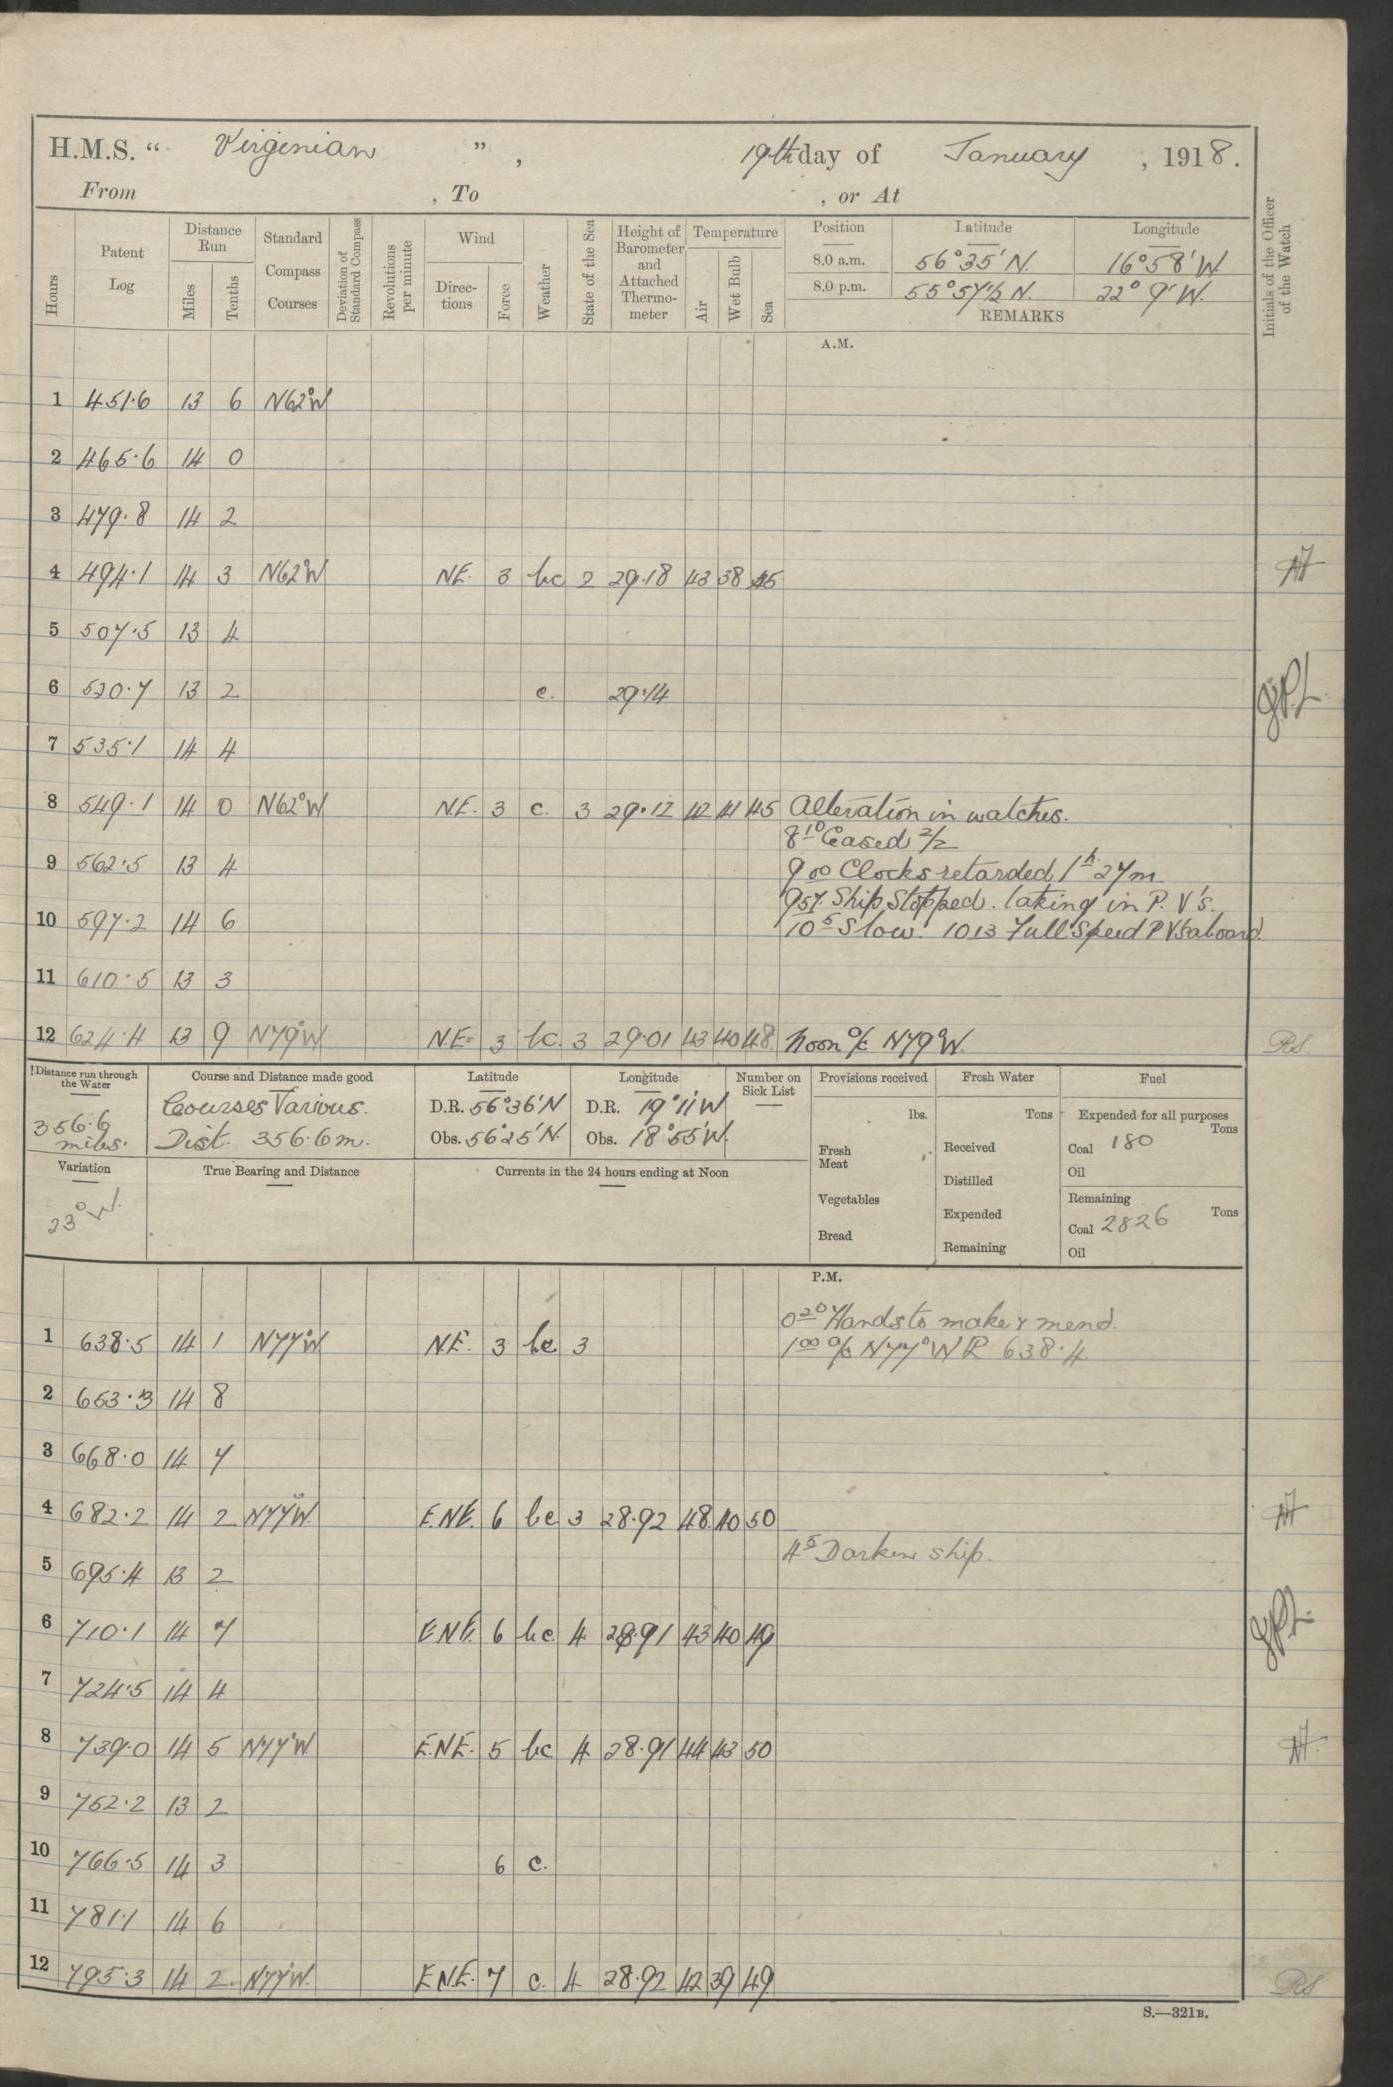 H.M.S. “ Virginian ” , 19th day of January , 1918.
From , To , or At
Hours
Patent Log
Distance Run
Miles
Tenths
Standard Compass Courses
Deviation of Standard Compass
Revolutions per minute
Wind
Directions
Force
Weather
State of the Sea
Height of Barometer and Attached Thermometer
Temperature
Air
Wet Bulb
Sea
Position Latitude Longitude
8.0 a.m. 56°35' N. 16°58' W
8.0 p.m. 55°57½ N. 22° 9' W.
REMARKS
Initials of the Officer of the Watch
A.M.
1 451.6 13 6 N62°W
2 465.6 14 0
3 479.8 14 2
4 494.1 14 3 N62°W NE. 3 bc 2 29.18 43 38 45
5 507.5 13 4
6 520.7 13 2 c. 29.14
7 535.1 14 4
8 549.1 14 0 N62°W N.E. 3 c. 3 29.12 42 41 45 Alteration in watches.
8 10 Eased 2/2
9 562.5 13 4 9 00 Clocks retarded 1h 27m
9 57. Ship Stopped. taking in P.V's.
10 597.2 14 6 10 5 Slow. 10 13 Full Speed P V's aboard.
11 610.5 13 3
12 624.4 13 9 N79°W N.E. 3 bc. 3 29.01 43 40 48. Noon o/c N79°W. RS
Distance run through the Water
356.6 miles.
Course and Distance made good
Courses Various.
Dist. 356.6 m.
Latitude
D.R. 56°36' N
Obs. 56°25' N.
Longitude
D.R. 19°11' W
Obs. 18°55' W.
Number on Sick List
Provisions received
lbs.
Fresh Meat
Vegetables
Bread
Fresh Water
Tons
Received
Distilled
Expended
Remaining
Fuel
Expended for all purposes
Tons
Coal 180
Oil
Remaining
Tons
Coal 2826
Oil
Variation
23° W.
True Bearing and Distance
Currents in the 24 hours ending at Noon
P.M.
0 20 Hands to make & mend.
1 638.5 14 1 N77°W N.E. 3 bc 3 1 00 o/c N77°W PL 638.4
2 653.3 14 8
3 668.0 14 7
4 682.2 14 2 N77°W. E.N.E. 6 bc 3 28.92 48 40 50
4 5 Darken ship.
5 695.4 13 2
6 710.1 14 7 E.N.E. 6 bc 4 28.91 43 40 49
7 724.5 14 4
8 739.0 14 5 N77°W. E.N.E. 5 bc 4 28.91 44 43 50
9 752.2 13 2
10 766.5 14 3 6 c.
11 781.1 14 6
12 795.3 14 2 N77°W. E.N.E. 7 c. 4 28.92 42 39 49 RS
S.—321B.